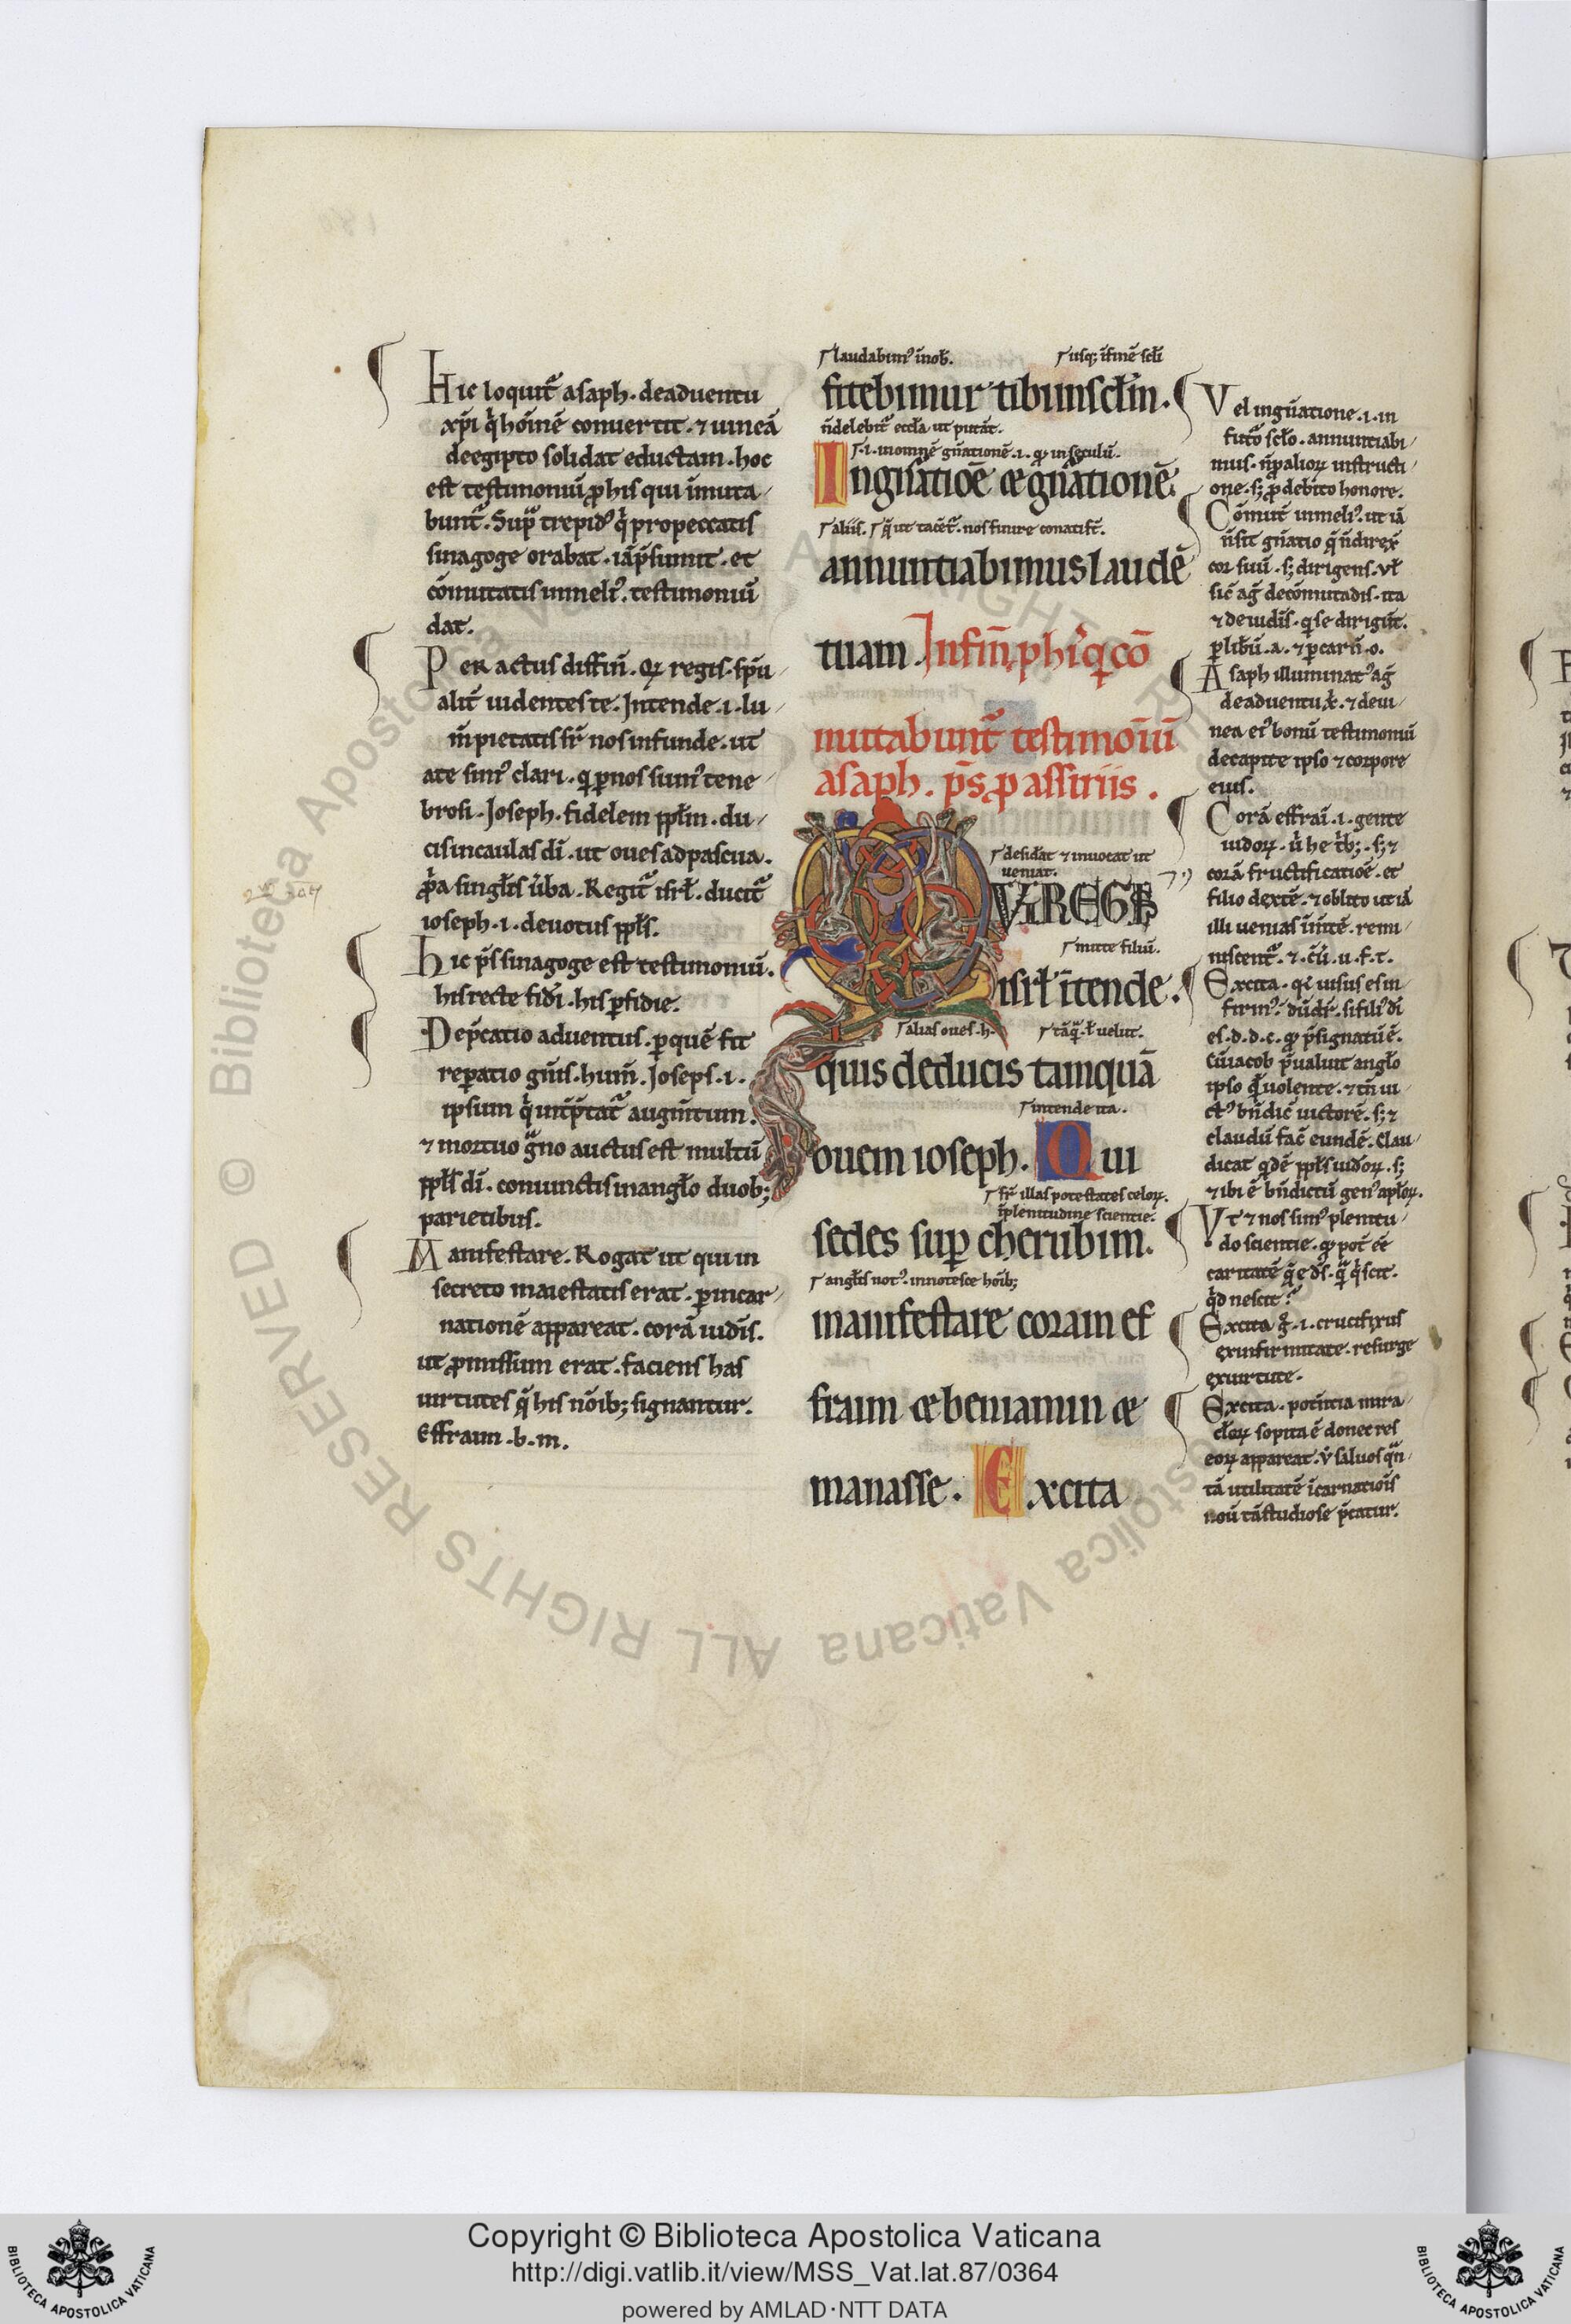 Hic loquit᷑ asaph. de aduentu
xp̄i q̍ hoīnē conuertit. ⁊ uineā
de egipto solidat eductam. hoc
est testimoniū ꝓ his qui īmuta
bunt᷑. Sup᷑ trepid᷒ q̍ pro peccatis
sinagoge orabat. iā p̄sumit. et
cōmutatis in meli᷒. testimoniū
dat.
Per actus diffiñ. qꝛ regis. sp̄u
alit᷑ uidentes te. Intende .i. lu
m̄ pietatis sr̄ nos infunde. ut
a te sim᷒ clari. q̍ ꝑ nos sum᷒ tene
brosi. Ioseph. fidelem pp̄lm. du
cis in caulas dī. ut oues ad pascua.
p̄a singl̄is ūba. Regit᷑ isrl̄. ducit᷑
ioseph .i. deuotus pp̄ls.
Hic p̄s sinagoge est testimoniū.
his recte fidei. his ꝑfidie.
Dep̄catio aduentus. ꝑ quē fit
reꝑatio gn̄is. hum̄. Joseps .i.
ipsum q̍ int̄p̄tat᷑ augm̄tum.
⁊ mortuo g̊no auctus est multū
pp̄ls dī. coniunctis in angl̄o duob;
parietibus.
Manifestare. Rogat ut qui in
secreto maiestatis erat. ꝑ incar
nationē appareat. corā iudīs.
ut ꝓmissum erat. faciens has
uirtutes q̄ his nōib; signantur.
Effraim .b. m.
laudabim᷒ in ob̄. usq; ī finē scl̄i
fitebimur tibi in sclm̄.
n̄ delebit᷑ eccl̄a. ut putāt.
.i. in omnē gn̄ationē .i. qꝫ in seculū.
In gn̄atioē ⁊ gn̄ationē
aliis. q̄ ut tacēt᷑. nos finire conati st̄.
annuntiabimus laudē
tuam. In finē, ꝓ hi'q̍ cō
mutabunt᷑ testimoīū
asaph. p̄s ꝓ assiriis.
desidat ⁊ inuocat ut
ueniat.
QVI REGIS
mitte filiū.
isrl̄ ītende.
alias oues .h. tāq̄. l̄ uelut.
quis deducis tamquā
intende ita.
ouem ioseph. Qui
sr̄ illas potestates celoꝝ.
ī plenitudine scientie.
sedes suꝑ cherubim.
angl̄is not᷒. innotesce hoīb;
manifestare coram ef
fraim ⁊ beniamin ⁊
manasse. Excita
Vel in gn̄atione .i. in
futō scl̄o. annuntiabi
mus. n̄ ꝓ alioꝝ instructi
one. s; ꝓ debito honore.
Cōmut̄ in meli᷒. ut iā
n̄ sit gn̄atio q̄ n̄ direx̄
cor suū. s; dirigens. vl̄
sic̄ aḡ de cōmutadis. ita
⁊ de iudīs. q̍ se dirigūt.
Asaph illuminat᷒ aḡ
de aduentu x̄. ⁊ de ui
nea ei᷒ bonū testimoniū
de capite ipso ⁊ corpore
eius.
Corā effraī .i. gente
corā fructificatioē. et
filio dextē. ⁊ oblito ut iā
illi uenias ī mītē. remi
niscent᷑.
Excita. q̍ uisus es in
es. d. d. c. qꝫ p̄signatū ē.
Cū iacob p̄ualuit angl̄o
ipso q̊ uolente. ⁊ tn̄ ui
ct᷒ bn̄dic̄ uictorē. s; ⁊
claudū fac̄ eundē. Clau
dicat q̍dē pp̄ls iudoꝝ. s;
⁊ ibi ē bn̄dictū gen᷒ apl̄oꝝ.
Vt ⁊ nos sim᷒ plenitu
do scientie. qꝫ pot̄ ēē
caritatē q̄ ē ds̄. q̄ q̍ scit.
q̍d nescit?
Excita g̊ .i. crucifixus
ex infirmitate. resurge
ex uirtute.
Excita. potītia mira
cl̄oꝝ sopita ē donec res
eoꝝ appareat. ⁊ saluos q̄n
tā utilitatē īcarnatiōis
noū tā studiose p̄catur.
Copyright © Biblioteca Apostolica Vaticana
http://digi.vatlib.it/view/MSS_Vat.lat.87/0364
powered by AMLAD·NTT DATA
BIBLIOTECA APOSTOLICA VATICANA
BIBLIOTECA APOSTOLICA VATICANA
© Biblioteca Apostolica Vaticana ALL RIGHTS RESERVED